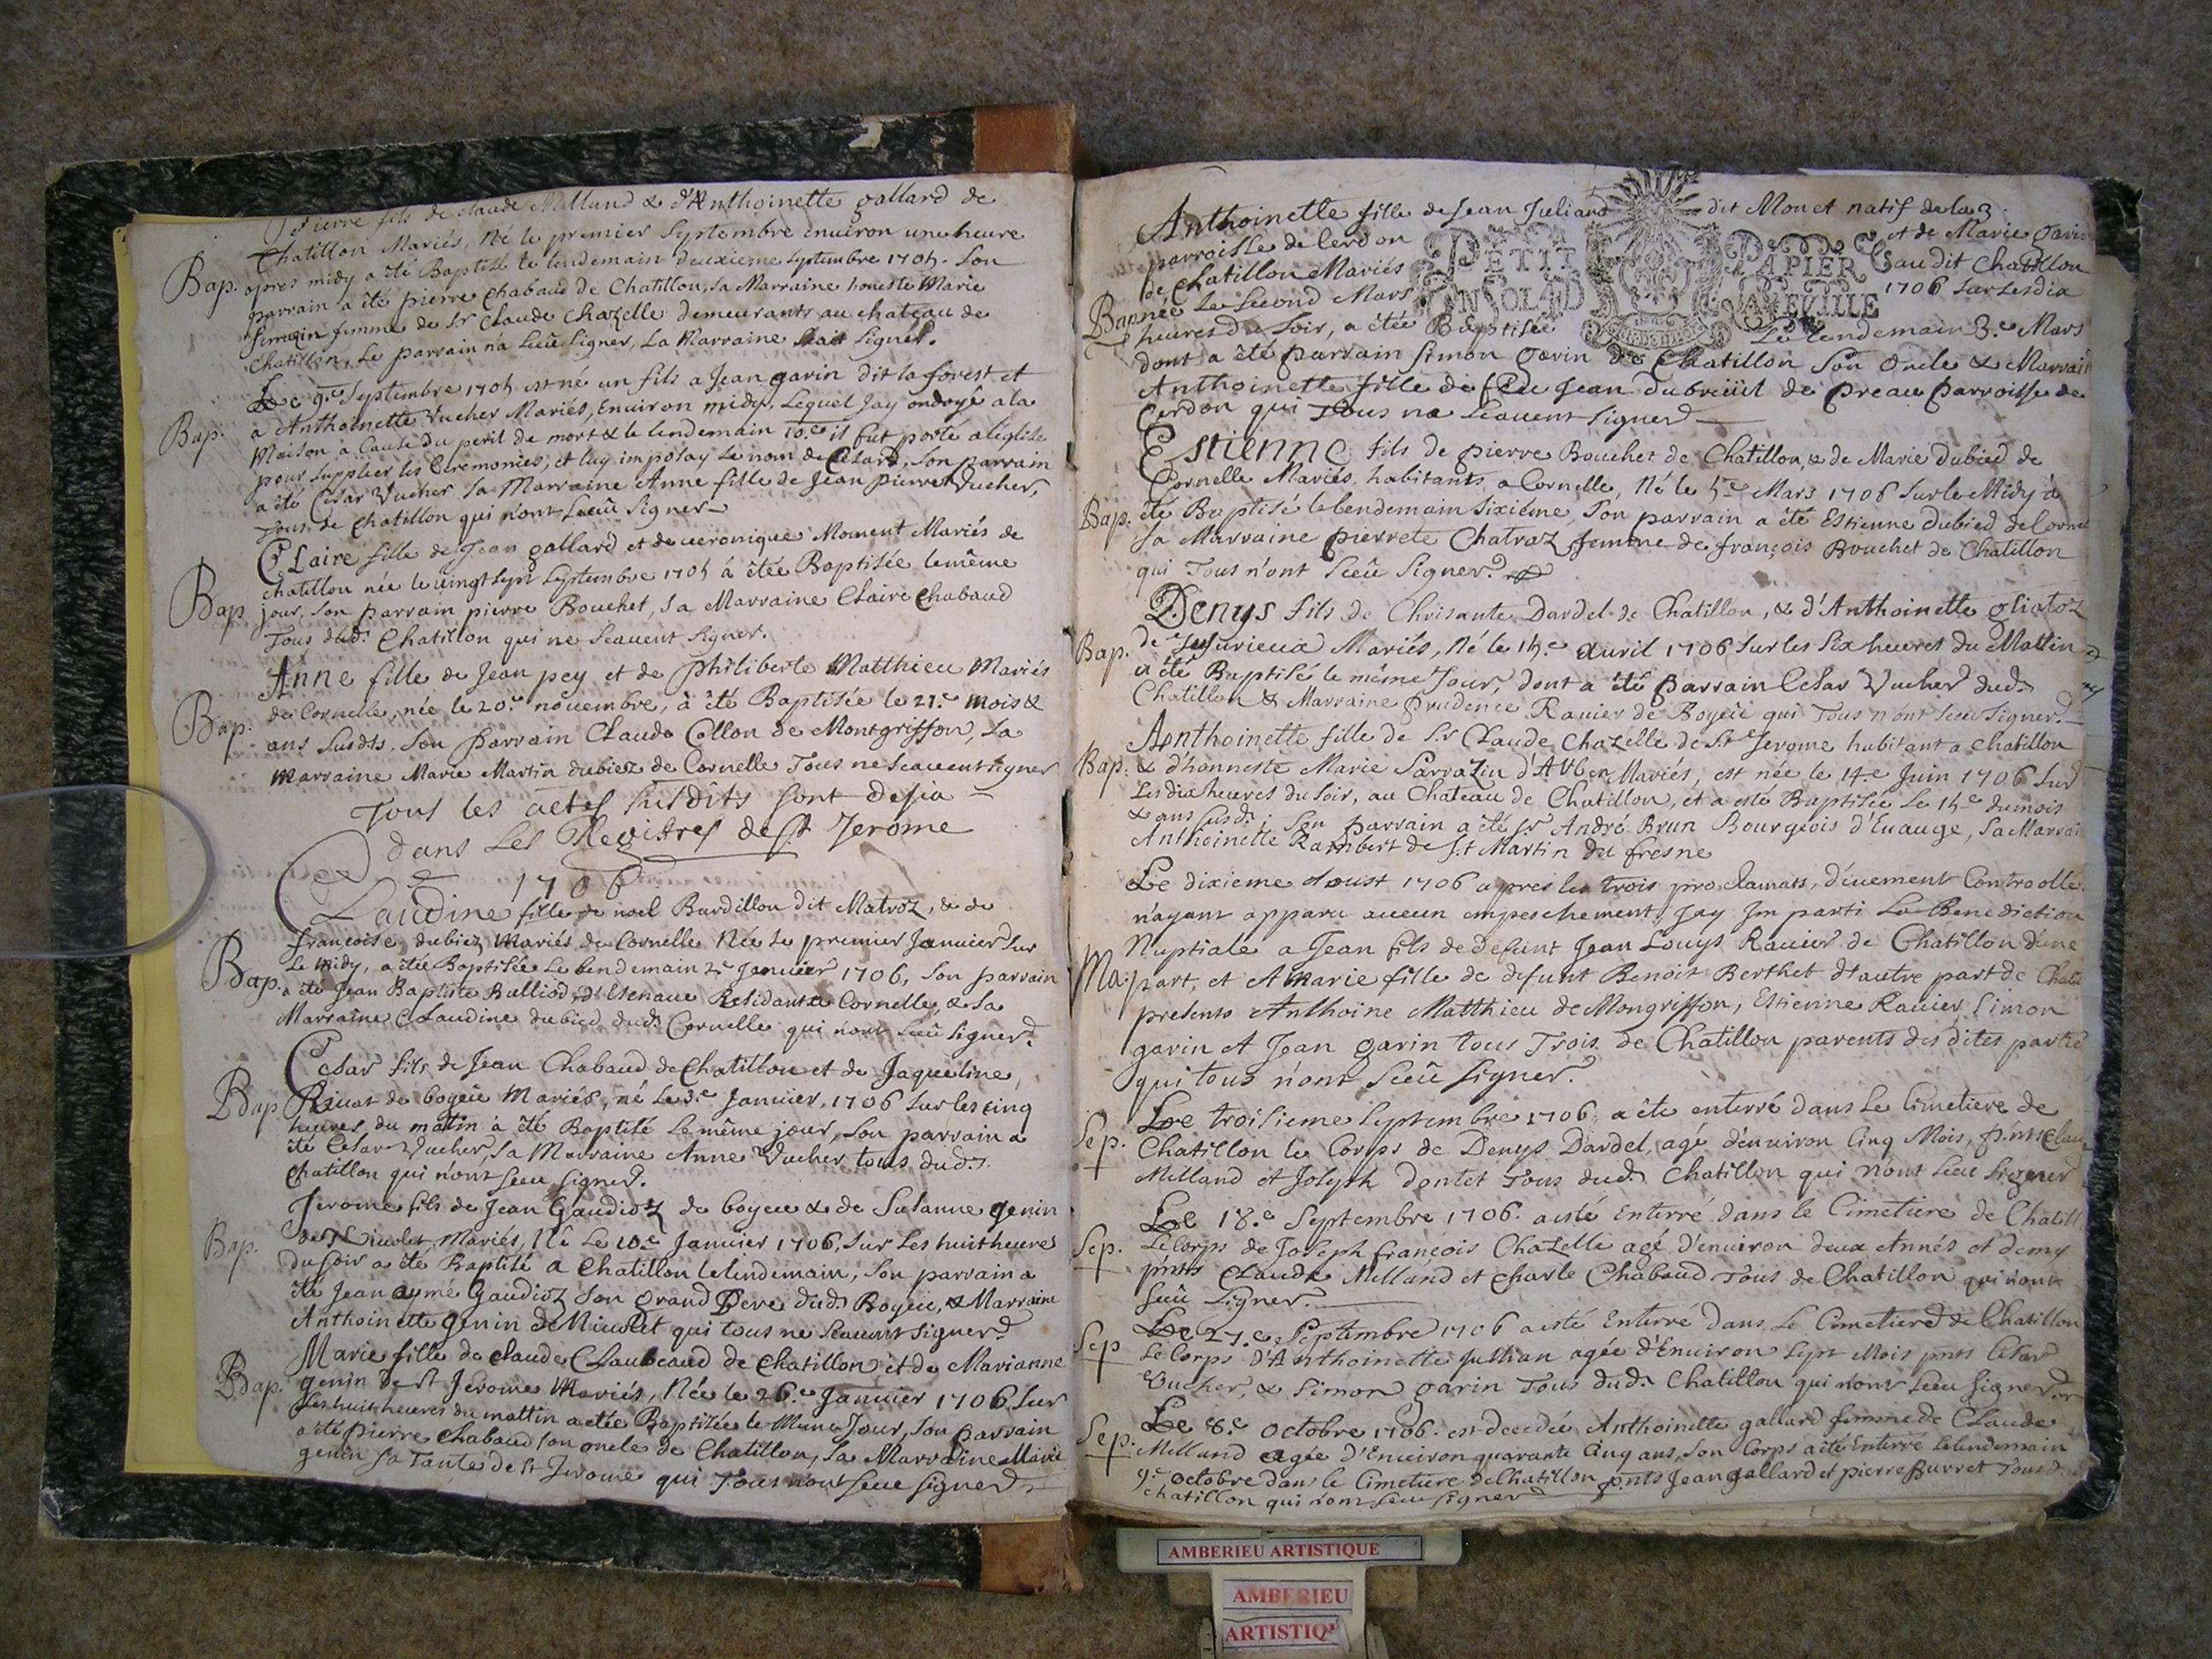 Pierre fils de claude Milland & d'Anthoinette gallard de
Chatillon Mariés, Né le premier Septembre enuiron une heure
Bap. apres midy a été Baptisé le lendemain deuxieme septembre 1705. Son
parrain a été pierre chabaud de Chatillon, sa Marraine honeste Marie
femme de Sr Claude Chazelle demeurants au chateau de
Chatillon, Le parrain n'a sceû signer, La Marraine signer.
Le 9.e Septembre 1705 est né un fils a Jean garin dit la forest et
a Anthoinette Vucher Mariés, Enuiron midy, Lequel Jay ondoyé a la
Bap. Maison a Cause du peril de mort & le lendemain 10.e il fut porté a l'église
pour supplier les Ceremonies, et luy imposay le nom de Cesard, son parrain
a été Cesar Vucher sa Marraine Anne fille de Jean pierre Vucher,
Tous de chatillon qui n'ont sceû signer
Claire fille de Jean gallard et de ueronique Moment Mariés de
chatillon née le uingt sept Septembre 1705 à étée Baptisée le même
Bap. jour, son parrain pierre Bouchet, sa Marraine Claire Chabaud
Tous dud. Chatillon qui ne sçauent signer.
Anne fille de Jean pey et de philiberte Matthieu Mariés
de Cornelle, née le 20.e nouembre, à été Baptisée le 21.e mois &
Bap. ans susdts, son parrain Claude Collon de Montgriffon, La
marraine Marie Martin dubiez de Cornelle Tous ne sçauent signer
Tous les actes susdits sont desia
dans les Regitres de St Jerome
1706
Claudine fille de noel Bardillon dit Matroz, & de
françoise dubiez Mariés de Cornelle Née le premier Januier sur
Le midy, a étée Baptisée le lendemain 2e Januier 1706, son parrain
Bap. a été Jean Baptiste Ralliod, d'Esenaue Residant a Cornelle, & sa
Marraine Claudine dubied dud. Cornelle qui n'ont sceû signer.
Cesar fils de Jean Chabaud de Chatillon et de Jaqueline
Bap. Riuat de boyeü Mariés, né le 3.e Januier, 1706 sur les cinq
heures du matin à été Baptisé le même jour, son parrain a
été Cesar Vucher, sa Marraine Anne Vucher tous dud.
chatillon qui n'ont sceu signer.
Jerome fils de Jean Gaudioz de boyeu & de Susanne genin
de Nicolet, Mariés, Né Le 10.e Januier 1706, sur Les huit heures
Bap. du soir a été Baptisé a Chatillon le lendemain, son parrain a
été Jean aymé Gaudioz son grand Pere dud. Boyeü, & Marraine
Anthoinette genin de Nicolet qui tous ne sçauent signer
Marie fille de claude Claubeaud de chatillon et de Marianne
Bap. genin de st Jerome Mariés, Née le 26.e Januier 1706 sur
Les huit heures du mattin a étée Baptisée le Même Jour, son parrain
a été pierre chabaud son oncle de Chatillon, sa Marraine Marie
genin sa Tante de st Jerome qui Tous n'ont sceue signer
Anthoinette fille de Jean Juliand dit Monet natif de la
parroisse de Cerdon et de Marie garin
de Chatillon Mariés audit Chatillon
PETIT PAPIER
Bap. née Le second Mars 1706 sur Les dix
heures du soir, a étée Baptisée Le lendemain 3.e Mars
dont a été parrain Simon garin de Chatillon son Oncle & Marraine
Anthoinette fille de feu Jean dubreüil de preau parroisse de
Cerdon qui Tous ne sçauent signer
Estienne fils de pierre Bouchet de Chatillon, & de Marie dubied de
Cornelle Mariés, habitants a Cornelle, Né le 5.e Mars 1706 sur le Midy a
Bap. été Baptisé le lendemain sixième, son parrain a été Estienne dubied de Cornel
sa Marraine pierrete Chatraz femme de françois Bouchet de Chatillon
qui Tous n'ont sceû signer.
Denys fils de Chrisante Dardel de Chatillon, & d'Anthoinette gliatoz
Bap. de Jusurieux Mariés, Né le 15.e Auril 1706 sur les six heures du Mattin
a été Baptisé le même Jour, dont a été parrain Cesar Vucher dud.
Chatillon & Marraine prudence Rauier de Boyeü qui Tous n'ont sceu signer.
Anthoinette fille de Sr Claude Chazelle de St Jerome habitant a chatillon
Bap. & d'honneste Marie Sarrazin Mariés, est née le 14.e Juin 1706 sur
Les dix heures du soir, au Chateau de Chatillon, et a esté Baptisée le 15.e du mois
& ans susds. Son parrain a été Sr André Brun Bourgeois d'Euauge, sa Marrai
Anthoinette Rambert de St Martin du fresne
Le dixieme Aoust 1706 apres les trois proclamats, deüement Controolle
n'ayant apparu aucun empeschement, Jay Imparti La Benediction
Nuptiale a Jean fils de defunt Jean Louys Rauier de Chatillon d'une
Ma: part, et A Marie fille de defunt Benoit Berthet d'autre part de Chatil
presents Anthoine Matthieu de Mongriffon, Estienne Rauier, Simon
garin et Jean garin tous Trois de Chatillon parents des dites partie
qui tous n'ont sceû signer.
Le troisieme Septembre 1706 a été enterré dans Le Cimetiere de
Sep. Chatillon le Corps de Denys Dardel, agé d'enuiron Cinq Mois, pnts Clau
Milland et Joseph dontet Tous dud. Chatillon qui n'ont sceu signer
Le 18.e Septembre 1706. a esté Enterré dans le Cimetiere de Chatill
Sep. Le corps de Joseph françois Chazelle agé d'enuiron deux Années et demy
pnts Claude Milland et charle Chabaud Tous de Chatillon qui n'ont
sceû signer.
Le 27.e Septembre 1706 a esté Enterré dans Le Cimetiere de Chatillon
Sep. Le Corps d'Anthoinette Jullian agée d'Enuiron sept Mois pnts Cesar
Vucher, & Simon garin Tous dud. Chatillon qui n'ont sceu signer
Le 8.e octobre 1706. est decedée Anthoinette gallard femme de Claude
Sep. Milland agée d'Enuiron quarante Cinq ans, son Corps a été Enterré le lendemain
9.e octobre dans le Cimetiere de Chatillon pnts Jean gallard et pierre Burret Tous d
chatillon qui n'ont sceu signer
AMBERIEU ARTISTIQUE
AMBERIEU
ARTISTIQ